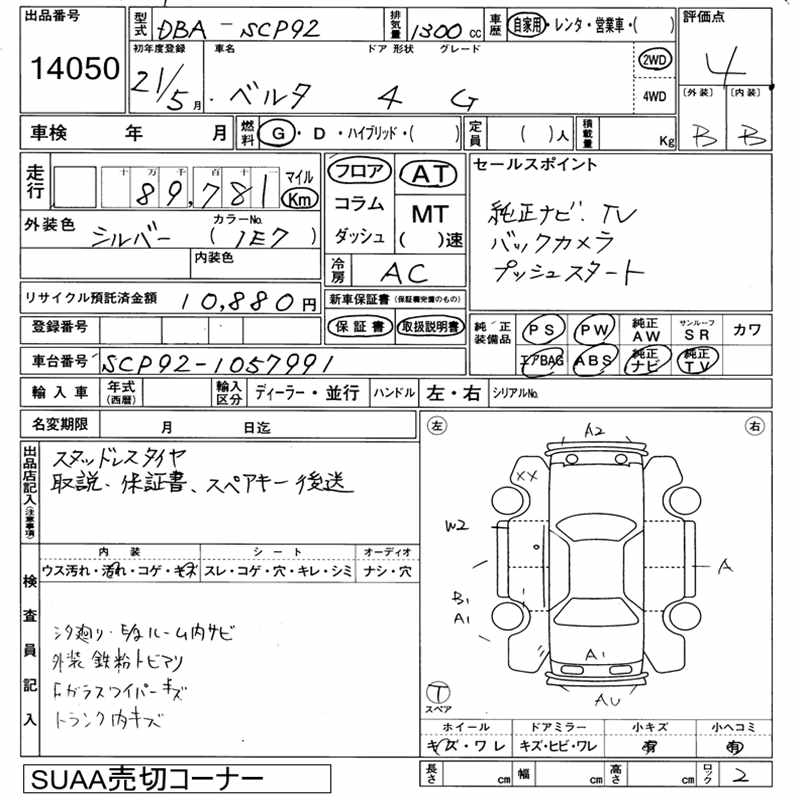 出品番号
14050
型式 DBA - SCP92
排気量 1300 cc
車歴 自家用・レンタ・営業車・( )
評価点
4
初年度登録 車名 ドア 形状 グレード
21/5月 ベルタ 4 G
2WD
4WD
〔外装〕 〔内装〕
B B
車検 年 月
燃料 G・D・ハイブリッド・( )
定員 ( )人
積載量 Kg
走行 十 万 千 百 十 一
89,781
マイル
Km
フロア
コラム
ダッシュ
AT
MT
( )速
セールスポイント
純正ナビ、TV
バックカメラ
プッシュスタート
外装色 シルバー
カラーNo.
( 1E7 )
内装色
冷房 AC
リサイクル預託済金額 10,880 円
新車保証書(保証書完備のもの)
保証書 取扱説明書
登録番号
純正装備品 PS PW 純正AW サンルーフSR カワ
エアBAG ABS 純正ナビ 純正TV
車台番号 SCP92-1057991
輸入車 年式(西暦) 輸入区分 ディーラー・並行 ハンドル 左・右 シリアルNo.
名変期限 月 日迄
出品店記入(注意事項)
スタッドレスタイヤ
取説、保証書、スペアキー後送
左 右
A2
XX
W2
A
B1
A1
A1
AU
T
スペア
検査員記入
内装 シート オーディオ
ウス汚れ・汚れ・コゲ・キズ スレ・コゲ・穴・キレ・シミ ナシ・穴
外装 鉄粉トビアリ
Fガラスワイパーキズ
トランク内キズ
ホイール ドアミラー 小キズ 小ヘコミ
キズ・ワレ キズ・ヒビ・ワレ 有 有
長さ cm 幅 cm 高さ cm ロック 2
SUAA売切コーナー